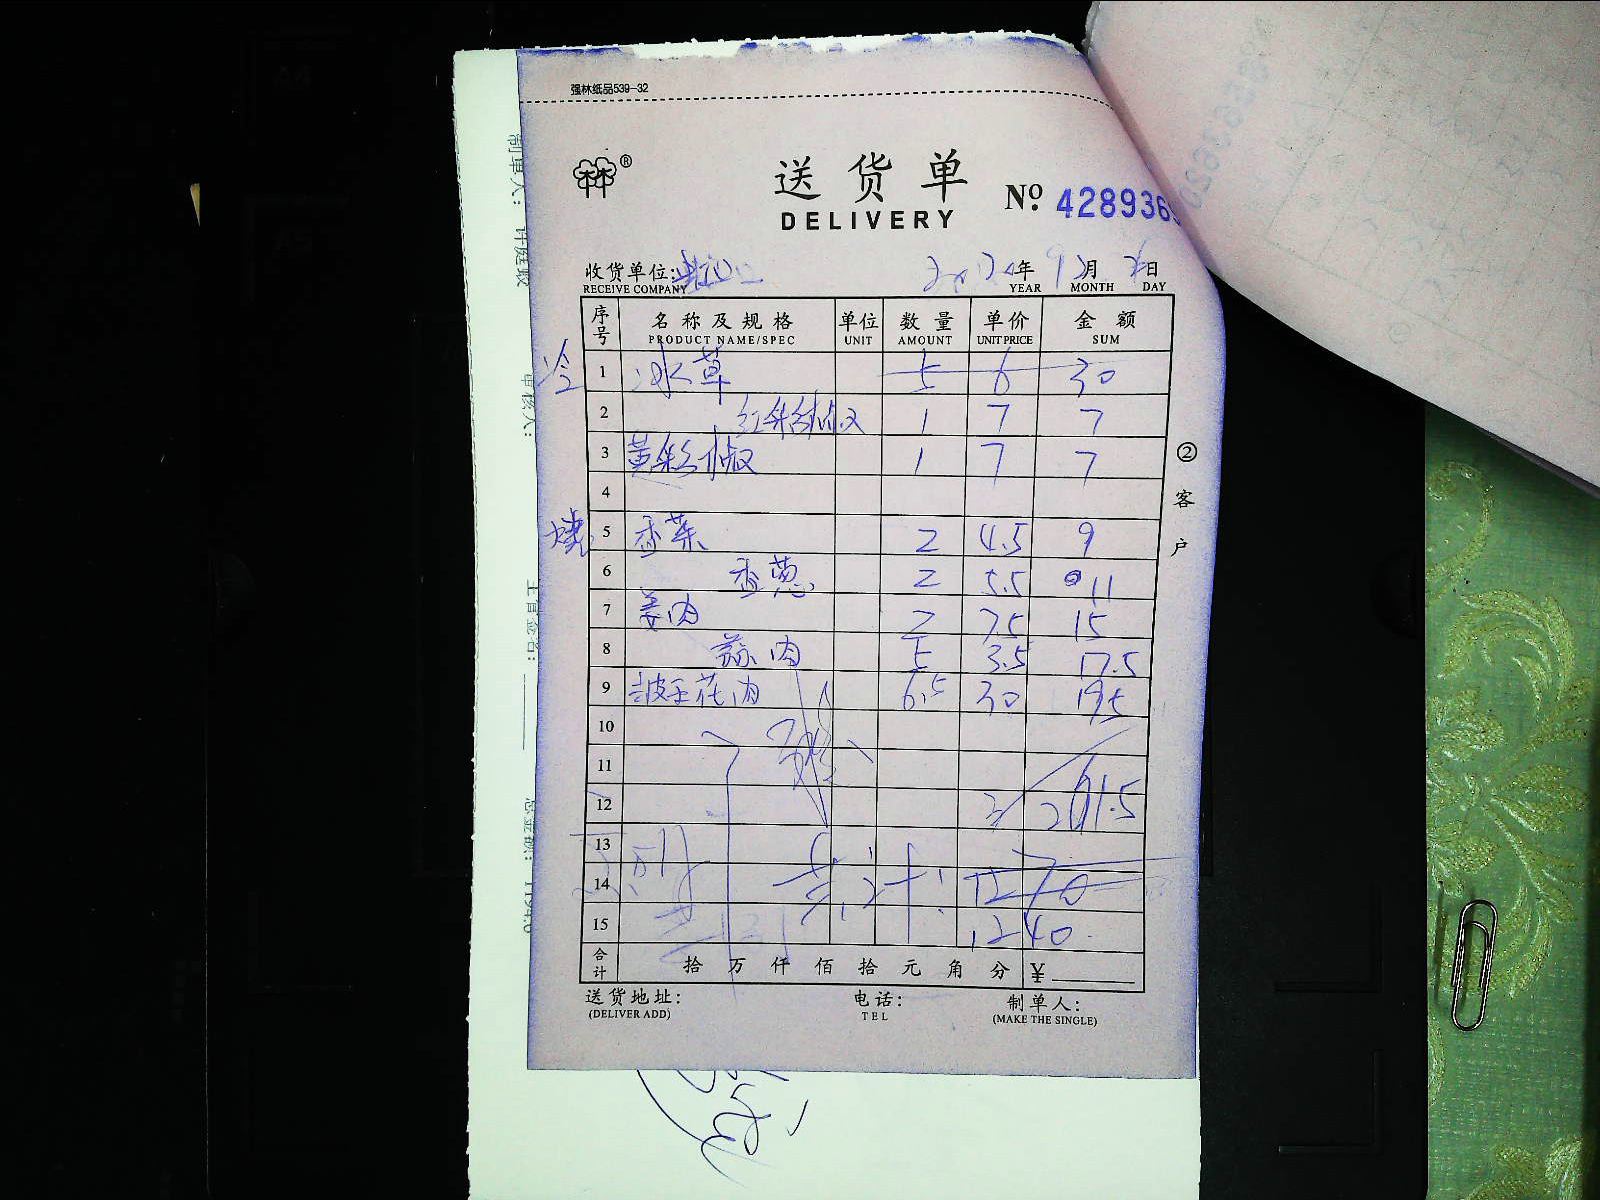 强林纸品539-32
®
送货单
DELIVERY
№ 428936
收货单位:
RECEIVE COMPANY
年 9月 日
YEAR MONTH DAY
序号 名称及规格 单位 数量 单价 金额
PRODUCT NAME/SPEC UNIT AMOUNT UNIT PRICE SUM
冷 1 冰草 5 6 30
2 红彩椒 1 7 7
3 黄彩椒 1 7 7
4
烧 5 香菜 2 4.5 9
6 香葱 2 5.5 11
7 姜肉 2 7.5 15
8 蒜肉 5 3.5 17.5
9 花肉 6.5 30 195
10
11
12 261.5
13
14 共计: 1270
15 1240
合计 拾 万 仟 佰 拾 元 角 分 ¥
送货地址: 电话: 制单人:
(DELIVER ADD) TEL (MAKE THE SINGLE)
②客户
制单人:
审核人:
主管签名:
总金额: